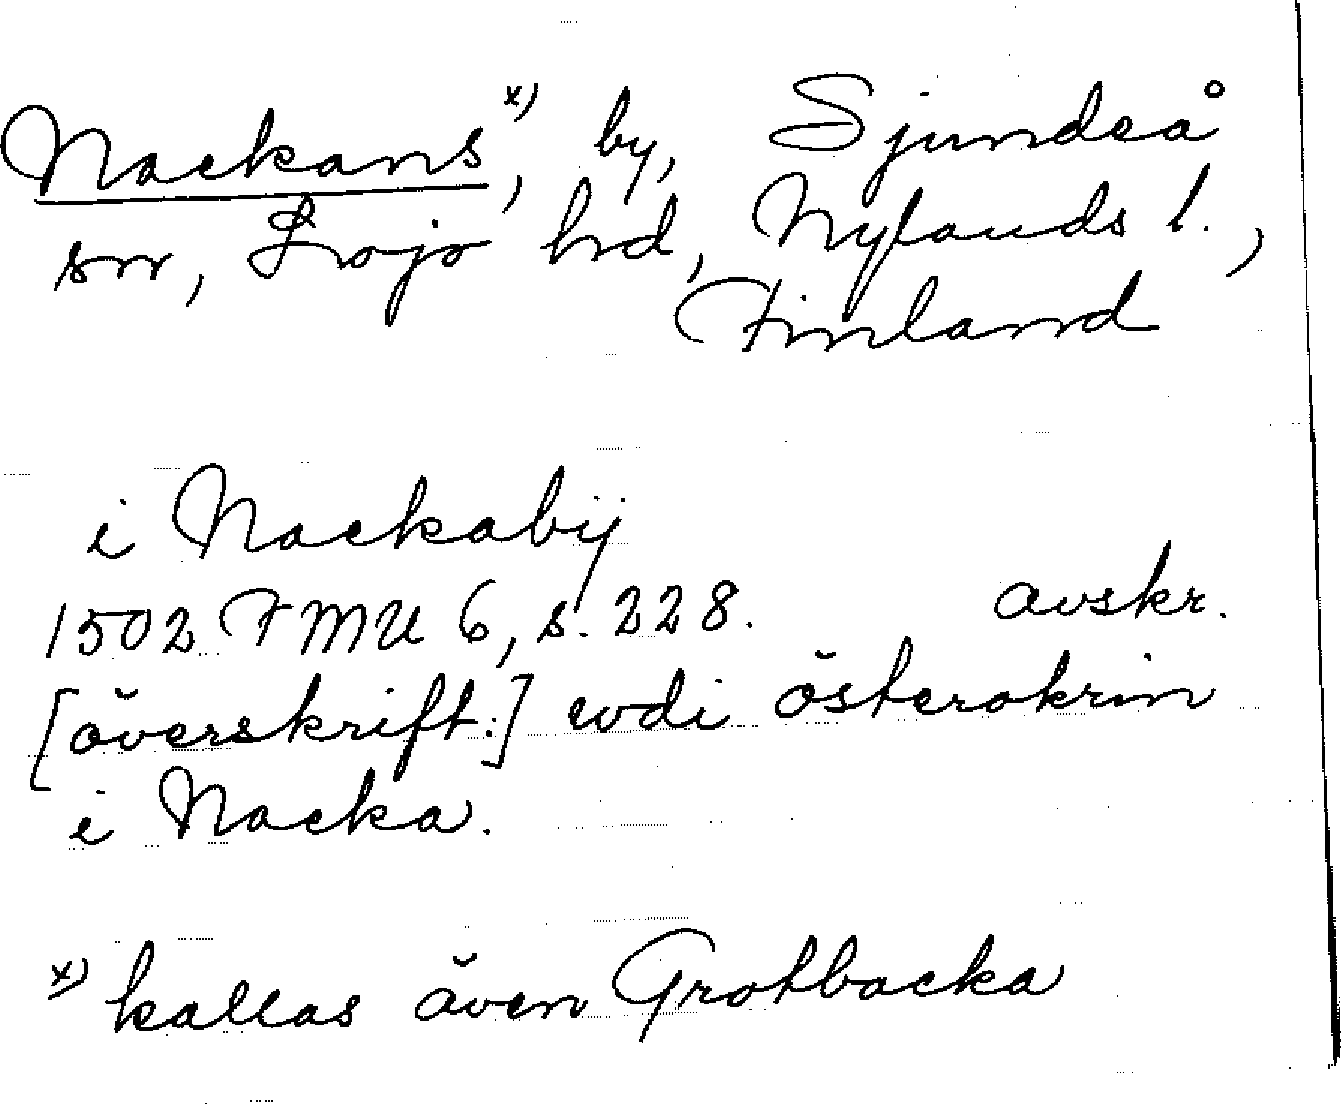 Nackans x), by, Sjundeå
sn, Lojo hd, Nylands l.,
Finland
i Nackabÿ
1502 FMU 6, s. 228. avskr.
[överskrift:] wdi österokrin
i Nacka.
x) kallas även Grotbacka